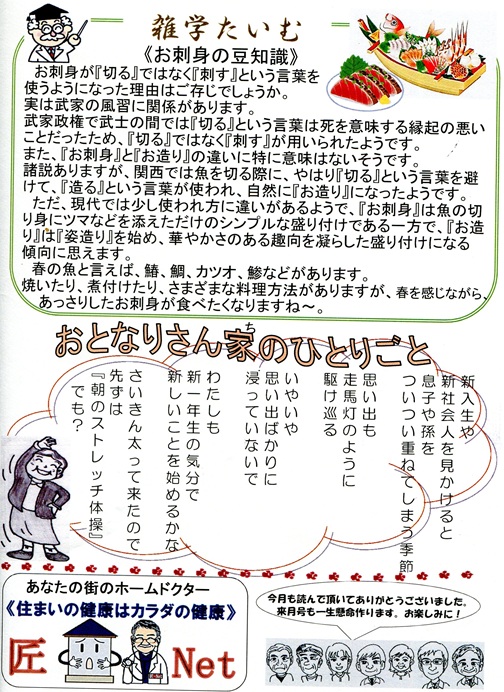 雑学たいむ
《お刺身の豆知識》
お刺身が『切る』ではなく『刺す』という言葉を
使うようになった理由はご存じでしょうか。
実は武家の風習に関係があります。
武家政権で武士の間では『切る』という言葉は死を意味する縁起の悪い
ことだったため、『切る』ではなく『刺す』が用いられたようです。
また、『お刺身』と『お造り』の違いに特に意味はないそうです。
諸説ありますが、関西では魚を切る際に、やはり『切る』という言葉を避
けて、『造る』という言葉が使われ、自然に『お造り』になったようです。
ただ、現代では少し使われ方に違いがあるようで、『お刺身』は魚の切
り身にツマなどを添えただけのシンプルな盛り付けである一方で、『お造
り』は『姿造り』を始め、華やかさのある趣向を凝らした盛り付けになる
傾向に思えます。
春の魚と言えば、鯖、鯛、カツオ、鯵などがあります。
焼いたり、煮付けたり、さまざまな料理方法がありますが、春を感じながら、
あっさりしたお刺身が食べたくなりますね～。
おとなりさん家のひとりごと
ち
新入生や
新社会人を見かけると
息子や孫を
ついつい重ねてしまう季節
思い出も
走馬灯のように
駆け巡る
いやいや
思い出ばかりに
浸っていないで
わたしも
新一年生の気分で
新しいことを始めるかな
さいきん太って来たので
先ずは
『朝のストレッチ体操』
でも？
あなたの街のホームドクター
《住まいの健康はカラダの健康》
匠 Net
今月も読んで頂いてありがとうございました。
来月号も一生懸命作ります。お楽しみに！